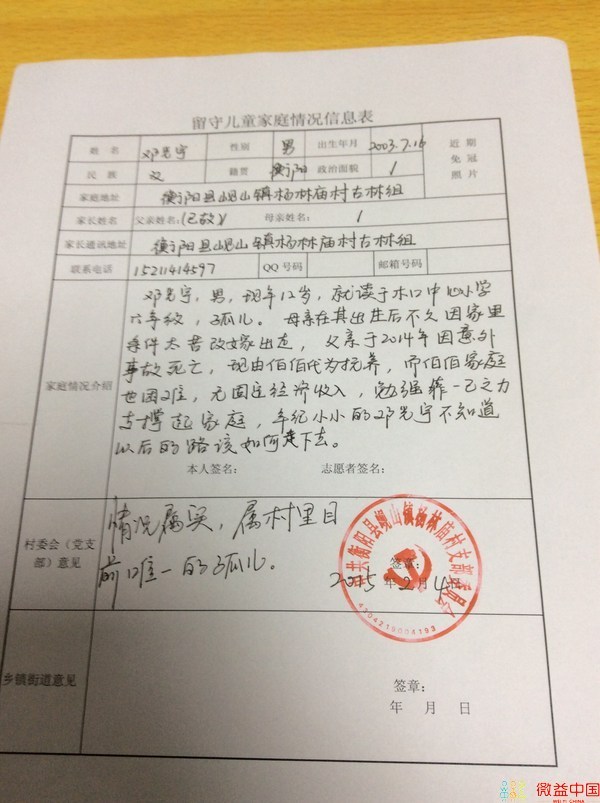 留守儿童家庭情况信息表
姓名 邓光宇 性别 男 出生年月 2003.7.16 近期免冠照片
民族 汉 籍贯 衡阳 政治面貌 /
家庭地址 衡阳县岘山镇杨林庙村古林组
家长姓名 父亲姓名:(已故) 母亲姓名: /
家长通讯地址 衡阳县岘山镇杨林庙村古林组
联系电话 15211414597 QQ号码 邮箱号码
家庭情况介绍
邓光宇,男,现年12岁,就读于木口中心小学
六年级,孤儿。母亲在其出生后不久因家里
条件太苦改嫁出走,父亲于2014年因意外
事故死亡,现由伯伯代为抚养,而伯伯家庭
也困难,无固定经济收入,勉强靠一己之力
支撑起家庭,年纪小小的邓光宇不知道
以后的路该如何走下去。
本人签名: 志愿者签名:
村委会(党支部)意见
情况属实,属村里目
前唯一的孤儿。
签章:
2015年2月4日
共衡阳县岘山镇杨林庙村支部委员会
4304219004192
乡镇街道意见
签章:
年 月 日
微益中国
WEIYI CHINA